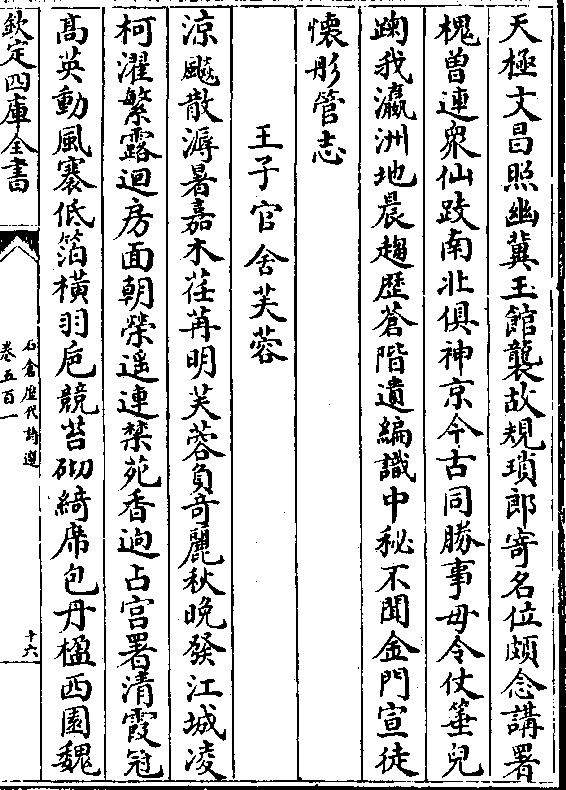 天極文昌照幽冀玉館襲故規瑣郎寄名位頗念講署
槐曽連衆仙跂南北俱神京今古同勝事毋令仗箠兒
踘我瀛洲地晨趨歴蒼階遺編識中秘不聞金門宣徒
懷彤管志
王子官舍芙蓉
涼飈散溽暑嘉木荏苒明芙蓉負竒麗秋晚發江城凌
柯濯繁露迴房面朝榮遥連禁苑香逈占宫署清霞冠
髙英動風褰低箔橫羽巵競苔砌綺席包丹楹西園魏
欽定四庫全書
石倉歴代詩選
卷五百一
十六